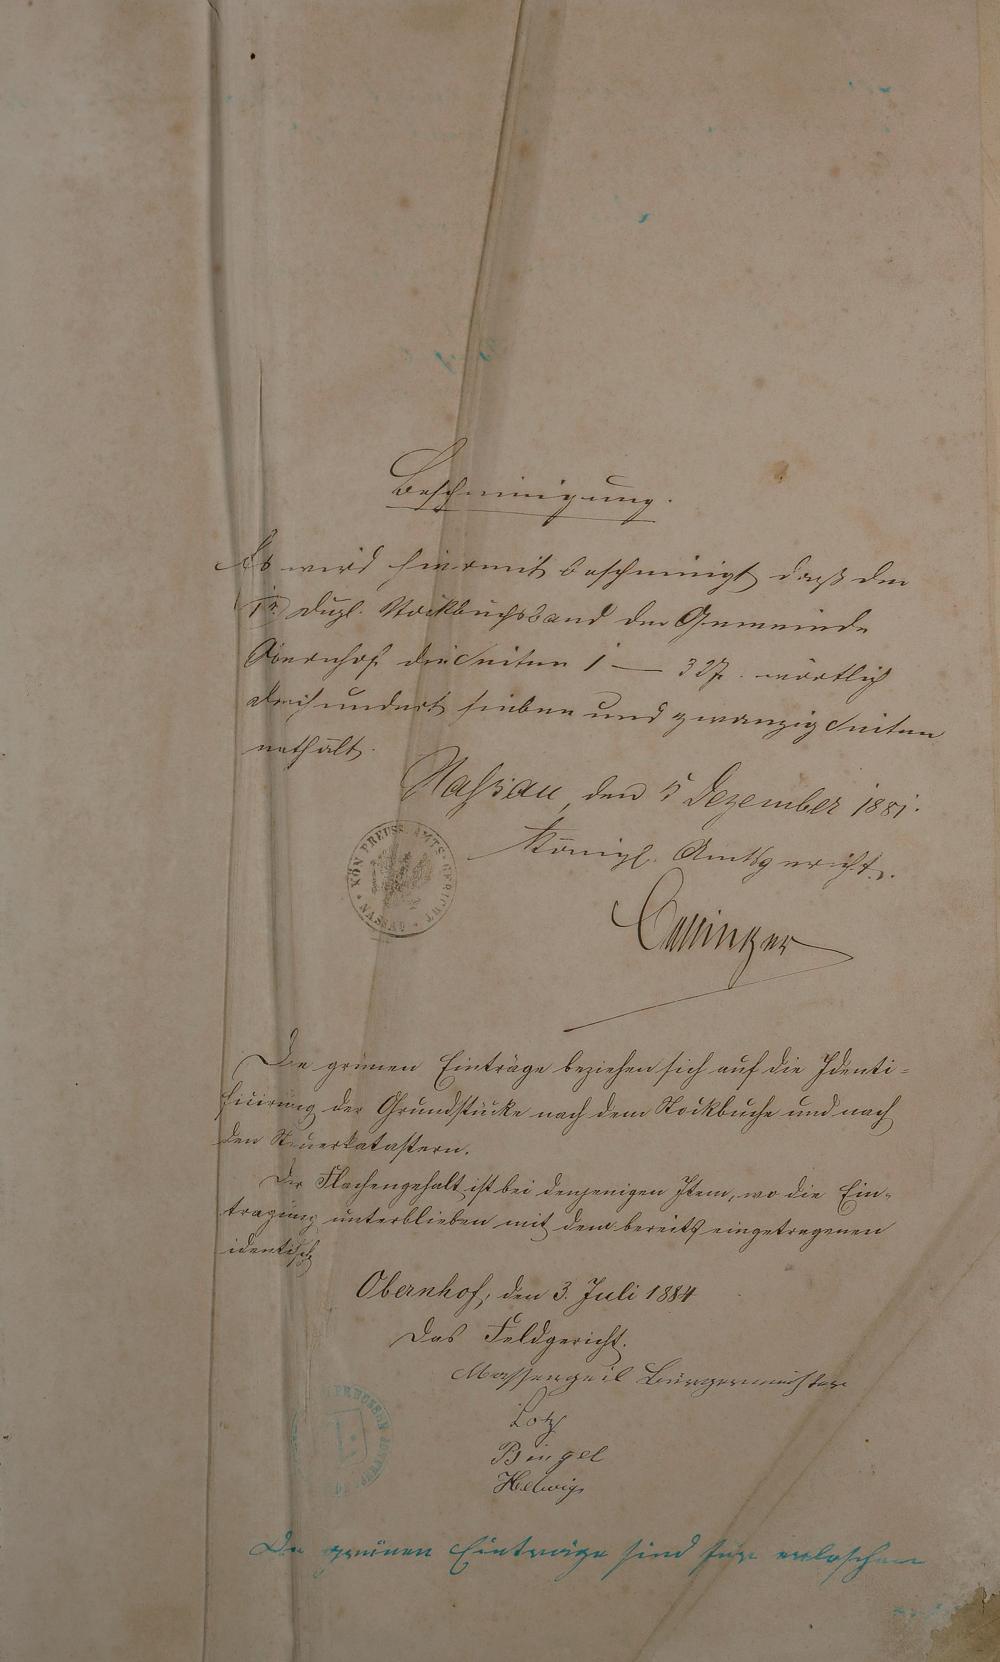 Bescheinigung.
Es wird hiermit bescheinigt daß der
Ir Dupl. Stockbuchsband der Gemeinde
Obernhof die Seiten 1 — 327. wörtlich
dreihundert sieben und zwanzig Seiten
enthält.
Nassau, den 5 Dezember 1881.
Königl. Amtsgericht.
KÖN. PREUSS. AMTS-GERICHT
* NASSAU *
Die grünen Einträge beziehen sich auf die Identi=
ficirung der Grundstücke nach dem Stockbuche und nach
den Steuerkatastern.
Der Flächengehalt ist bei denjenigen Item, wo die Ein=
tragung unterblieben mit dem bereits eingetragenen
identisch
Obernhof, den 3. Juli 1884
Das Feldgericht.
Massengeil Bürgermeister
Lotz
Bingel
Helwig
Die grünen Einträge sind erloschen